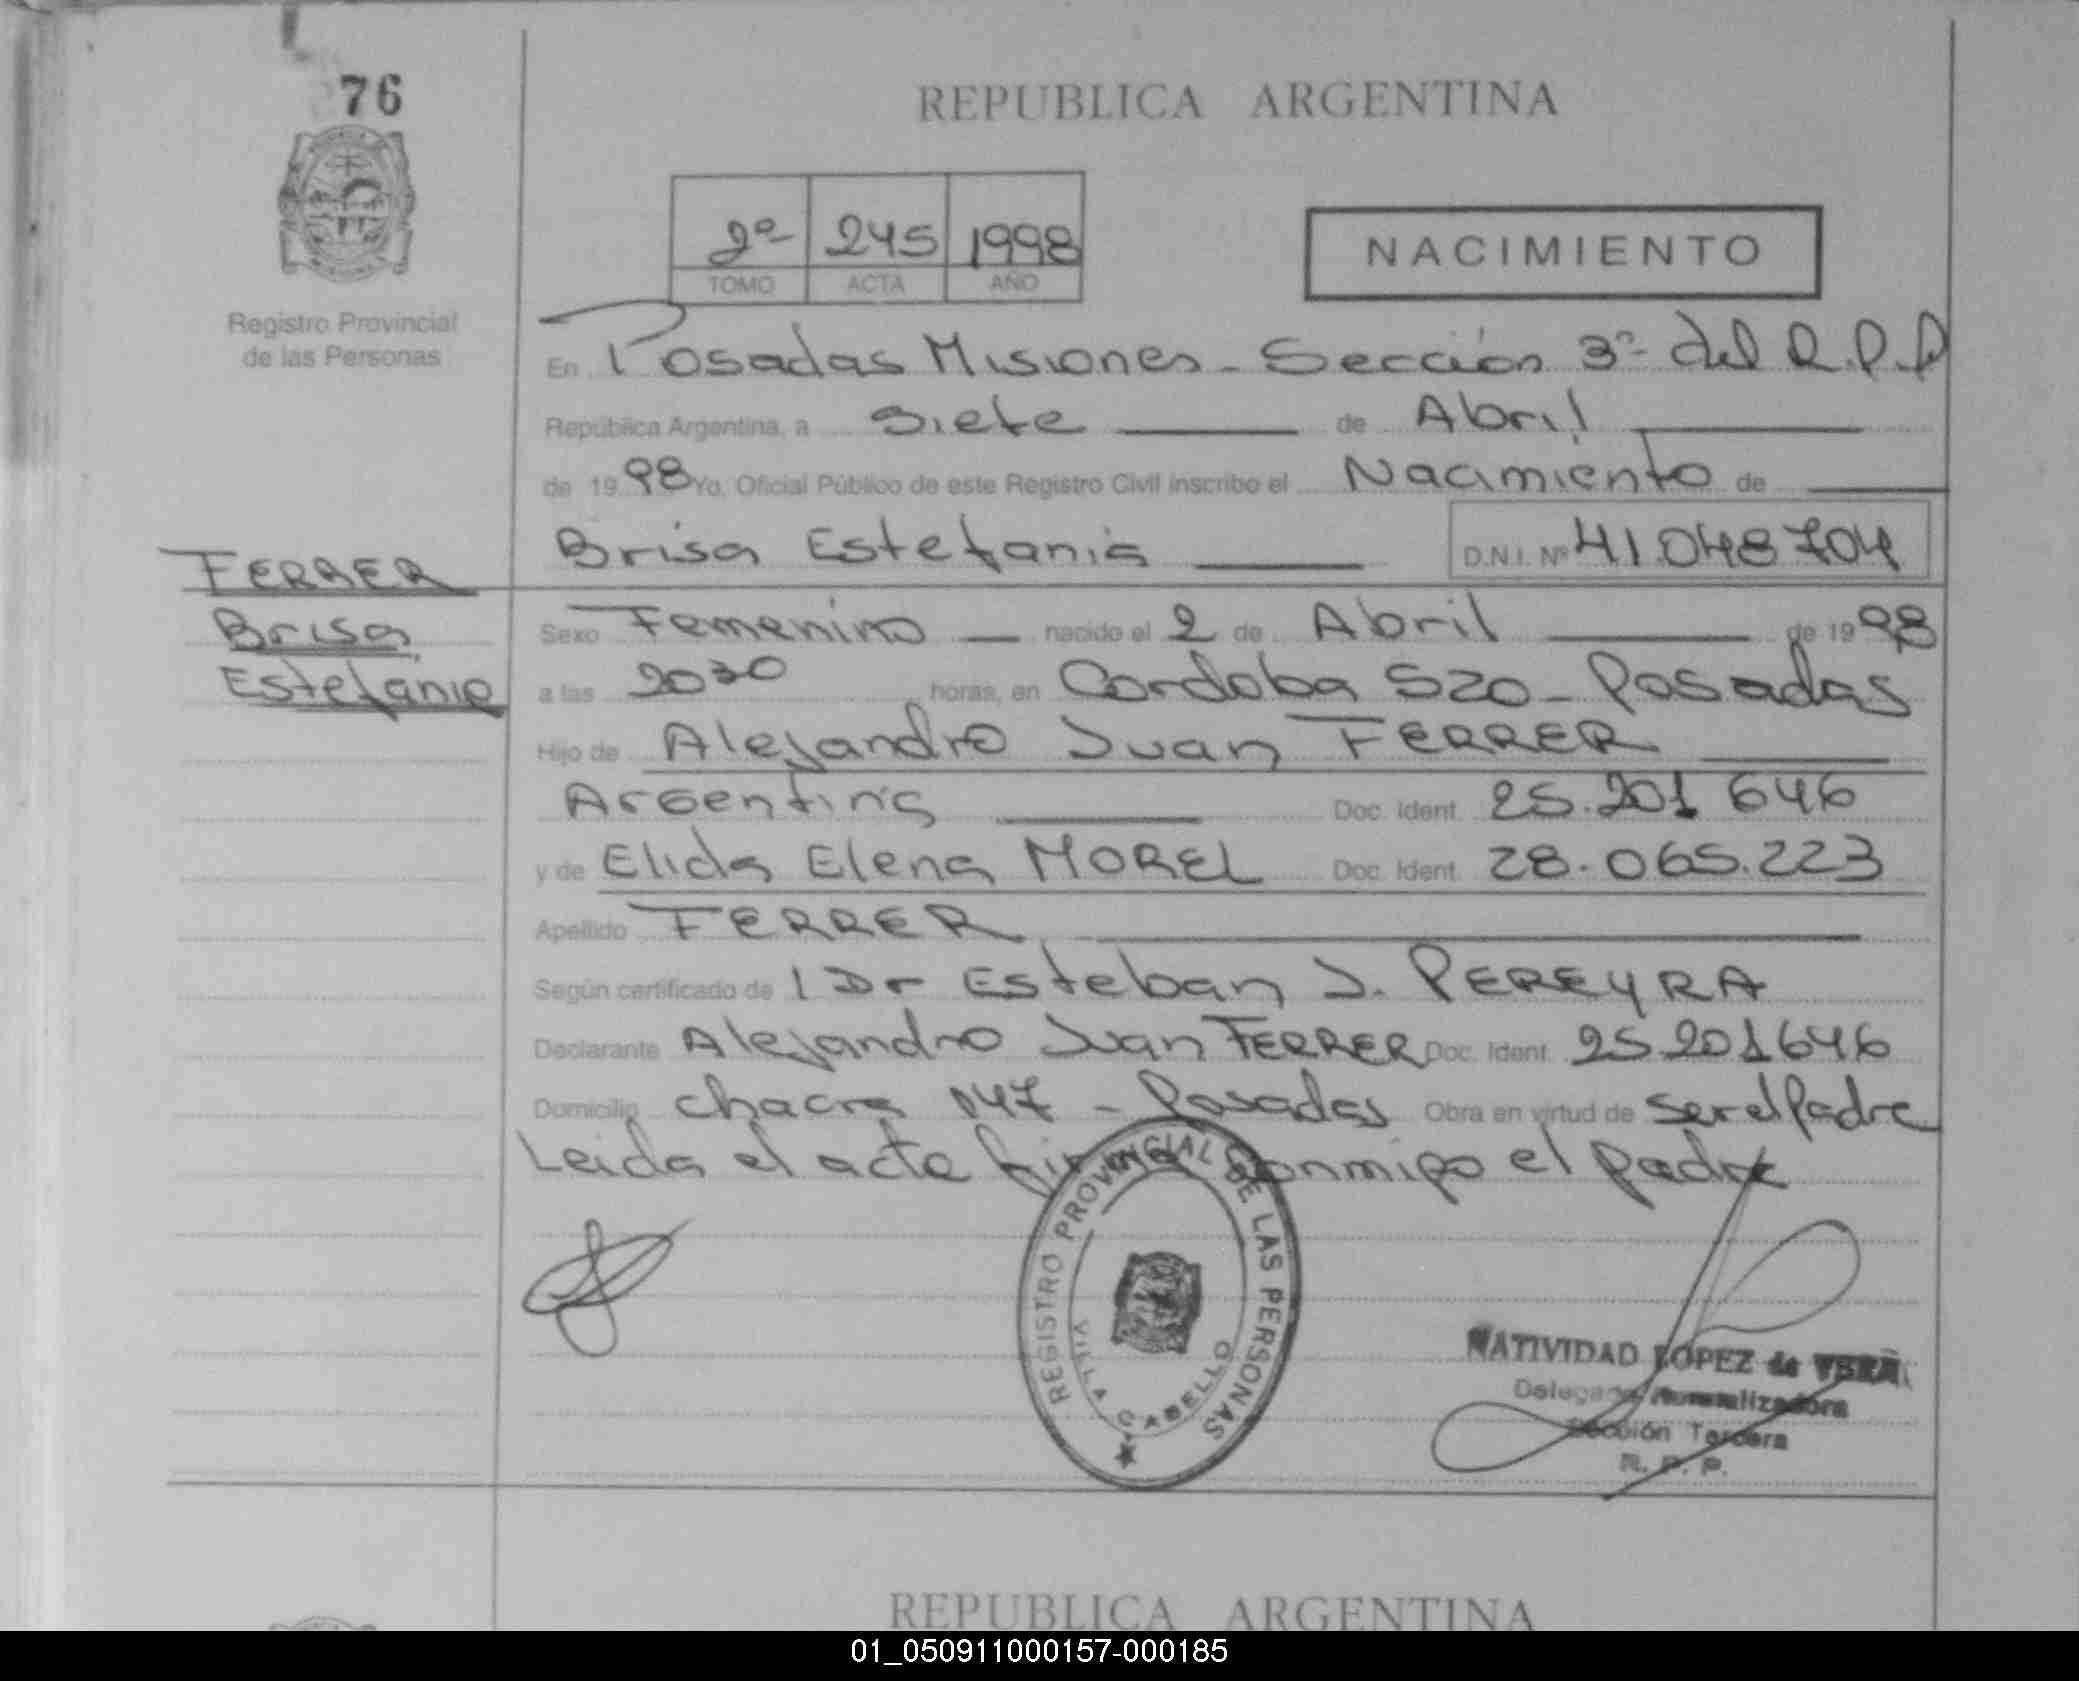 76
REPUBLICA ARGENTINA
2º 245 1998
TOMO ACTA AÑO
NACIMIENTO
Registro Provincial
de las Personas
En Posadas Misiones - Sección 3º del R.P.P
República Argentina, a siete de Abril
de 1998 Yo, Oficial Público de este Registro Civil inscribo el Nacimiento de
Brisa Estefania D.N.I. Nº 41.048704
FERRER
Brisa
Estefania
Sexo Femenino nacido el 2 de Abril de 1998
a las 2030 horas, en Cordoba 520 - Posadas
Hijo de Alejandro Juan FERRER
Argentina Doc. Ident. 25.201 646
y de Elida Elena MOREL Doc. Ident. 28.065.223
Apellido FERRER
Según certificado de l Dr Esteban J. PEREYRA
Declarante Alejandro Juan FERRER Doc. Ident. 25.201646
Domicilio chacra 147 - Posadas Obra en virtud de ser el Padre
Leida el acta conmigo el padre
REGISTRO PROVINCIAL DE LAS PERSONAS
VILLA CABELLO
NATIVIDAD LOPEZ de VERA
Sección Tercera
R. P. P.
REPUBLICA ARGENTINA
01_050911000157-000185